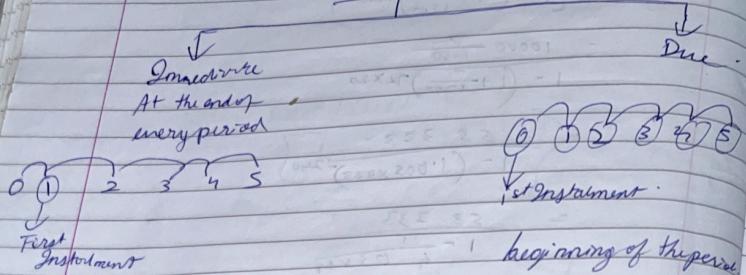 Immediate
At the end of
every period
0 1 2 3 4 5
First
Instalment
Due.
0 1 2 3 4 5
1st Instalment.
beginning of the period